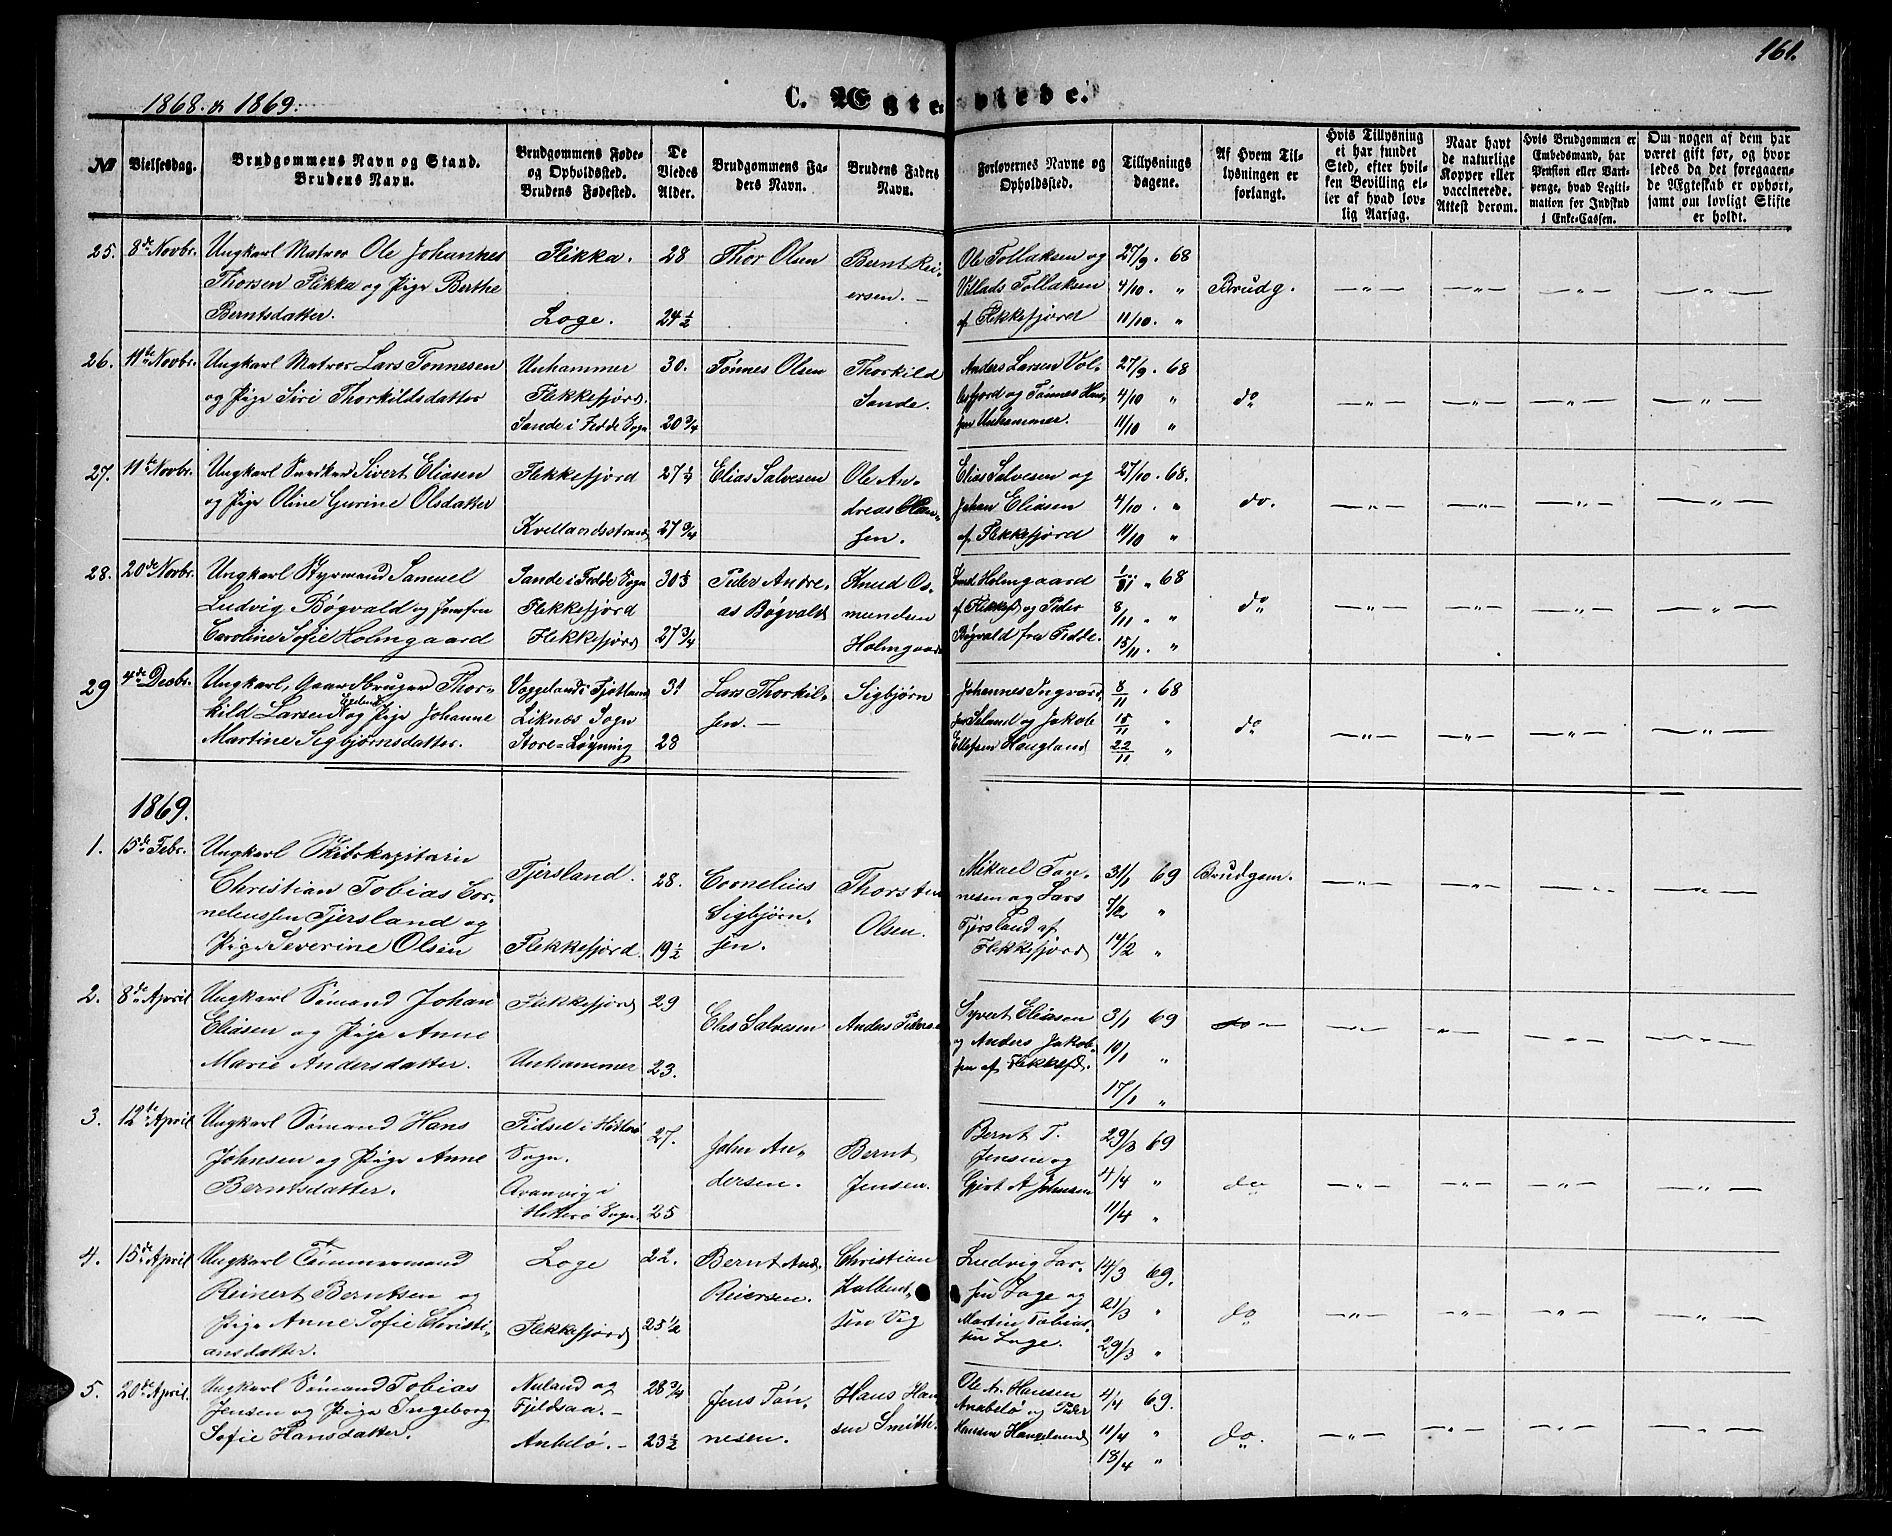 161.
1868. & 1869.
C. Ægteviede.
№
Vielsesdag.
Brudgommens Navn og Stand.
Brudens Navn.
Brudgommens Føde-
og Opholdssted.
Brudens Fødested.
De
Viedes
Alder.
Brudgommens Fa-
ders Navn.
Brudens Faders
Navn.
Forlovernes Navne og
Opholdssted.
Tillysnings
dagene.
Af Hvem Til-
lysningen er
forlangt.
Hvis Tillysning
ei har fundet
Sted, efter hvil-
ken Bevilling el-
ler af hvad lov-
lig Aarsag.
Naar havt
de naturlige
Kopper eller
vaccinerede.
Attest derom.
Hvis Brudgommen er
Embedsmand, har
Pension eller Vart-
penge, hvad Legiti-
mation for Indskud
i Enke-Cassen.
Om nogen af dem har
været gift før, og hvor
ledes da det foregaaen-
de Ægteskab er ophørt,
samt om lovligt Skifte
er holdt.
25. 8de Novbr.
Ungkarl Matros Ole Johannes
Thorsen Flikka og Pige Berthe
Berntsdatter.
Flikka.
Loge.
28
24 1/2
Thor Olsen
Bernt Rei-
ersen. —
Ole Tollaksen og
Villads Tollaksen
af Flekkefjord
27/9 . 68
4/10 . "
11/10 . "
Brudg.
—"— —"— —"— —"—
26. 11te Novbr.
Ungkarl Matros Lars Tønnesen
og Pige Siri Thorkildsdatter
Unhammer
Flekkefjord.
Sande i Fedde Sogn
30.
20 3/4
Tønnes Olsen
Thorkild
Sande.
Anders Larsen
og Tønnes Han-
sen Unhammer.
27/9 . 68
4/10 "
11/10 "
do
—"— —"— —"— —"—
27. 11te Novbr.
Ungkarl Snedker Sivert Eliasen
og Pige Oline Gurine Olsdatter
Flekkefjord
Kvellandsstrand
27 1/4
27 3/4
Elias Salvesen
Ole An-
dreas Han-
sen.
Elias Salvesen og
Johan Eliasen
af Flekkefjord
27/10 . 68.
4/10 . "
11/10 "
do.
—"— —"— —"— —"—
28. 20de Novbr.
Ungkarl Styrmand Samuel
Ludvig Bøgvald og Jomfru
Caroline Sofie Holmgaard
Sande i Fedde Sogn
Flekkefjord
Flekkefjord
30 1/3
27 3/4
Peder Andre-
as Bøgvald
Knud Os-
mundsen
Holmgaard
Holmgaard
af Flekkefd og Peder
Bøgvald fra Fedde.
1/11 " 68
8/11 . "
15/11 . "
do
—"— —"— —"— —"—
29 4de Decbr.
Ungkarl, Gaardbruger Thor-
kild Larsen og Pige Johanne
Martine Sigbjørnsdatter.
Voggeland i Fjotland
Liknæs Sogn
Store-Løgning
31
28
Lars Thorkil-
sen. —
Sigbjørn
Johannes Ingvard-
sen Seland og Jakob
Ellefsen Haugland
8/11 . 68
15/11 "
22/11 "
do
—"— —"— —"— —"—
1869.
1. 15de Febr.
Ungkarl Skibskapitain
Christian Tobias Cor-
neliussen Tjersland og
Pige Severine Olsen
Tjersland.
Flekkefjord
28.
19 1/2
Cornelius
Sigbjørn-
sen.
Thorsten
Olsen.
Mikael Tøn-
nesen og Lars
Tjersland af
Flekkefjord
31/1 69
7/2 "
14/2 "
Brudgom.
—"— —"— —"— —"—
2. 8de April
Ungkarl Sømand Johan
Eliasen og Pige Anne
Marie Andersdatter.
Flekkefjord
Unhammer
29
23.
Elias Salvesen
Anders Peders
Syvert Eliasen
og Anders Jakob-
sen af Flekkefd.
3/1 69
10/1 "
17/1 "
do
—"— —"— —"— —"—
3. 12te April
Ungkarl Sømand Hans
Johnsen og Pige Anne
Berntsdatter.
Fidsel i Hitterø
Sogn.
Qvanvig i
Hitterø Sogn.
27.
25
John An-
dersen.
Bernt
Jensen.
Bernt T.
Jensen og
Gjert A Johnsen
29/3 69
4/4 "
11/4 "
do
—"— —"— —"— —"—
4. 15de April
Ungkarl Tømmermand
Reinert Berntsen og
Pige Anne Sofie Christi-
ansdatter.
Loge
Flekkefjord
22.
25 1/2
Bernt And.
Reiersen.
Christian
Kalbent-
sen Vig
Ludvig Lar-
sen Loge og
Martin Tobias-
sen Loge.
14/3 69.
21/3 "
29/3 "
do
—"— —"— —"— —"—
5. 20de April.
Ungkarl Sømand Tobias
Jensen og Pige Ingeborg
Sofie Hansdatter.
Nuland og
Fjeldsaa. —
Anbelø. —
28 3/4
23 1/2
Jens Tøn-
nesen.
Hans Han
sen Smith.
Ole Ar. Hansen
Anabelø og Peder
Hansen Haugelund
4/4 69.
11/4 "
18/4 "
do.
—"— —"— —"— —"—